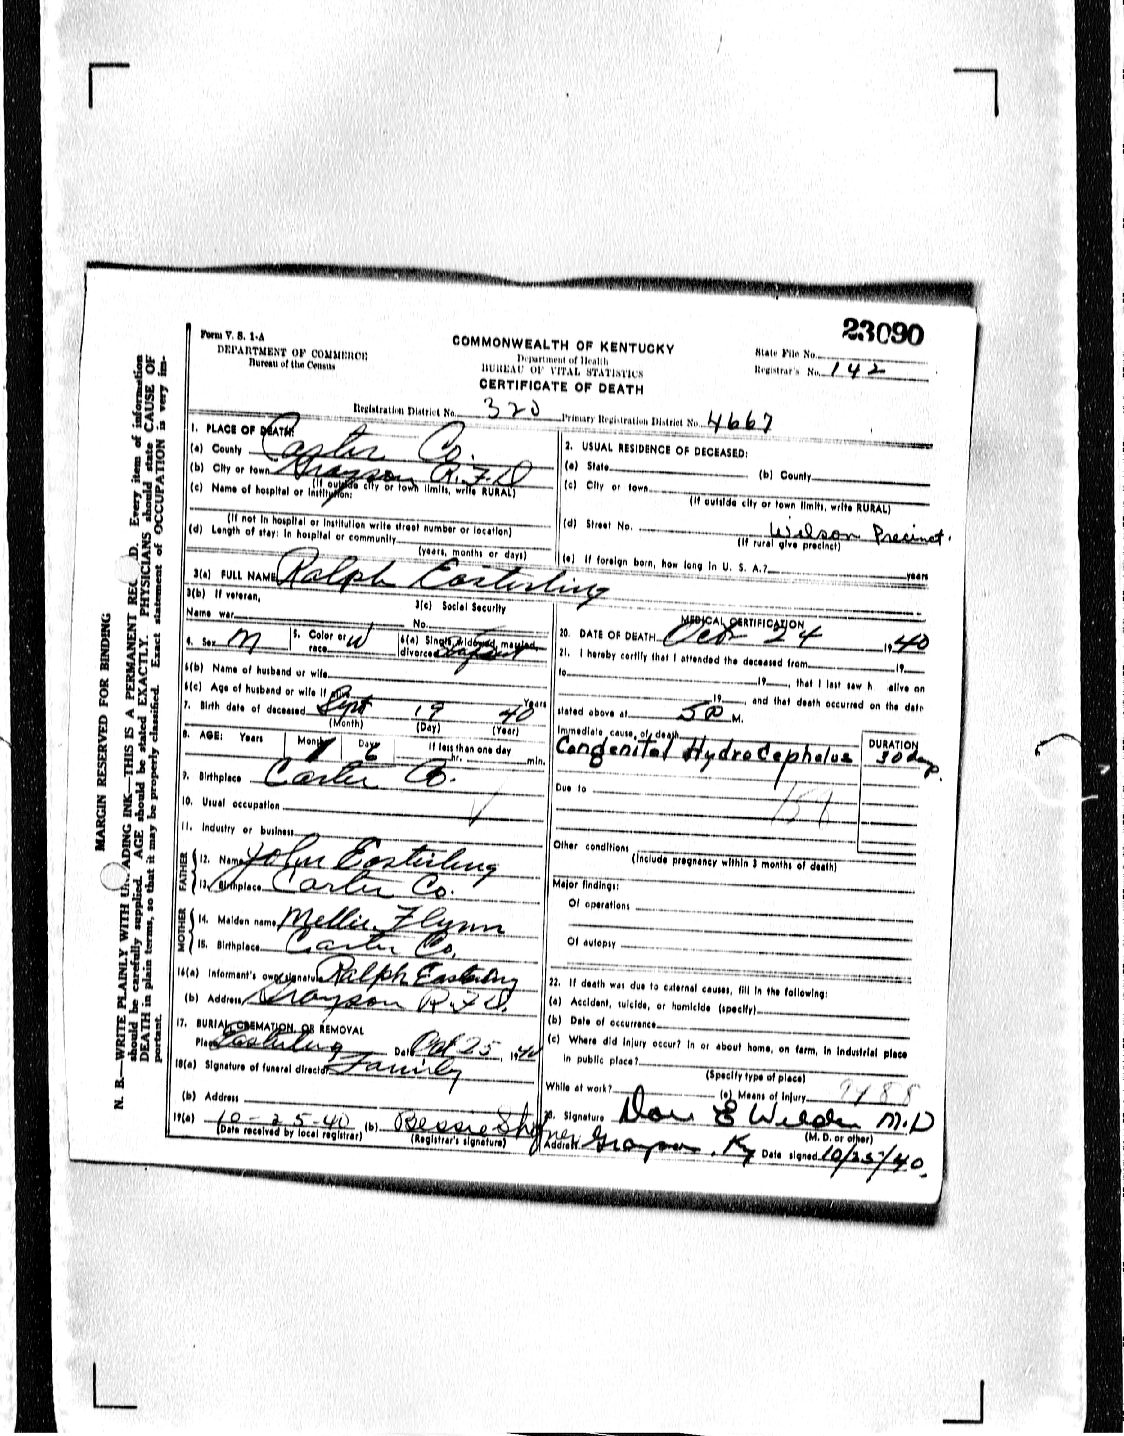 23090
Form V. S. 1-A
DEPARTMENT OF COMMERCE
Bureau of the Census
COMMONWEALTH OF KENTUCKY
Department of Health
BUREAU OF VITAL STATISTICS
CERTIFICATE OF DEATH
State File No.
Registrar's No. 142
Registration District No. 320 Primary Registration District No. 4667
1. PLACE OF DEATH:
(a) County Carter Co.
(b) City or town Grayson R.F.D
(If outside city or town limits, write RURAL)
(c) Name of hospital or institution:
(If not in hospital or institution write street number or location)
(d) Length of stay: In hospital or community
(years, months or days)
2. USUAL RESIDENCE OF DECEASED:
(a) State (b) County
(c) City or town
(If outside city or town limits, write RURAL)
(d) Street No. Wilson Precinct.
(If rural give precinct)
(e) If foreign born, how long in U. S. A.? years
3(a) FULL NAME Ralph Easterling
3(b) If veteran,
Name war
3(c) Social Security
No.
4. Sex M 5. Color or race W 6(a) Single, widowed, married, divorced Infant
6(b) Name of husband or wife
6(c) Age of husband or wife if alive Years
7. Birth date of deceased Sept 19 40
(Month) (Day) (Year)
8. AGE: Years Months 1 Days 6 If less than one day
hr. min.
9. Birthplace Carter Co.
10. Usual occupation
11. Industry or business
FATHER
12. Name John Easterling
13. Birthplace Carter Co.
MOTHER
14. Maiden name Mellie Flynn
15. Birthplace Carter Co.
16(a) Informant's own signature Ralph Easterling
(b) Address Grayson R.F.D.
17. BURIAL, CREMATION, OR REMOVAL
Place Easterling Date Oct 25, 1940
18(a) Signature of funeral director Family
(b) Address
19(a) 10-25-40 (b) Bessie
(Date received by local registrar) (Registrar's signature)
MEDICAL CERTIFICATION
20. DATE OF DEATH Oct 24 1940
21. I hereby certify that I attended the deceased from 19
to 19, that I last saw h alive on
19, and that death occurred on the date
stated above at 5:00 M.
Immediate cause of death
Congenital Hydrocephalus
DURATION
30 days
Due to
Other conditions
(Include pregnancy within 3 months of death)
Major findings:
Of operations
Of autopsy
22. If death was due to external causes, fill in the following:
(a) Accident, suicide, or homicide (specify)
(b) Date of occurrence
(c) Where did injury occur? In or about home, on farm, in industrial place
in public place?
(Specify type of place)
While at work? (e) Means of Injury
23. Signature Don E Wilder M.D
(M. D. or other)
Address Grayson, Ky Date signed 10/25/40.
MARGIN RESERVED FOR BINDING
N. B.—WRITE PLAINLY WITH UNFADING INK—THIS IS A PERMANENT RECORD. Every item of information
should be carefully supplied. AGE should be stated EXACTLY. PHYSICIANS should state CAUSE OF
DEATH in plain terms, so that it may be properly classified. Exact statement of OCCUPATION is very im-
portant.